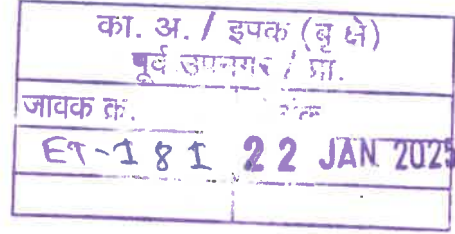 का. अ. / इपक (बृ क्षे)
पूर्व उपनगर / प्रा.
जावक क्र.
ET-181 22 JAN 2025